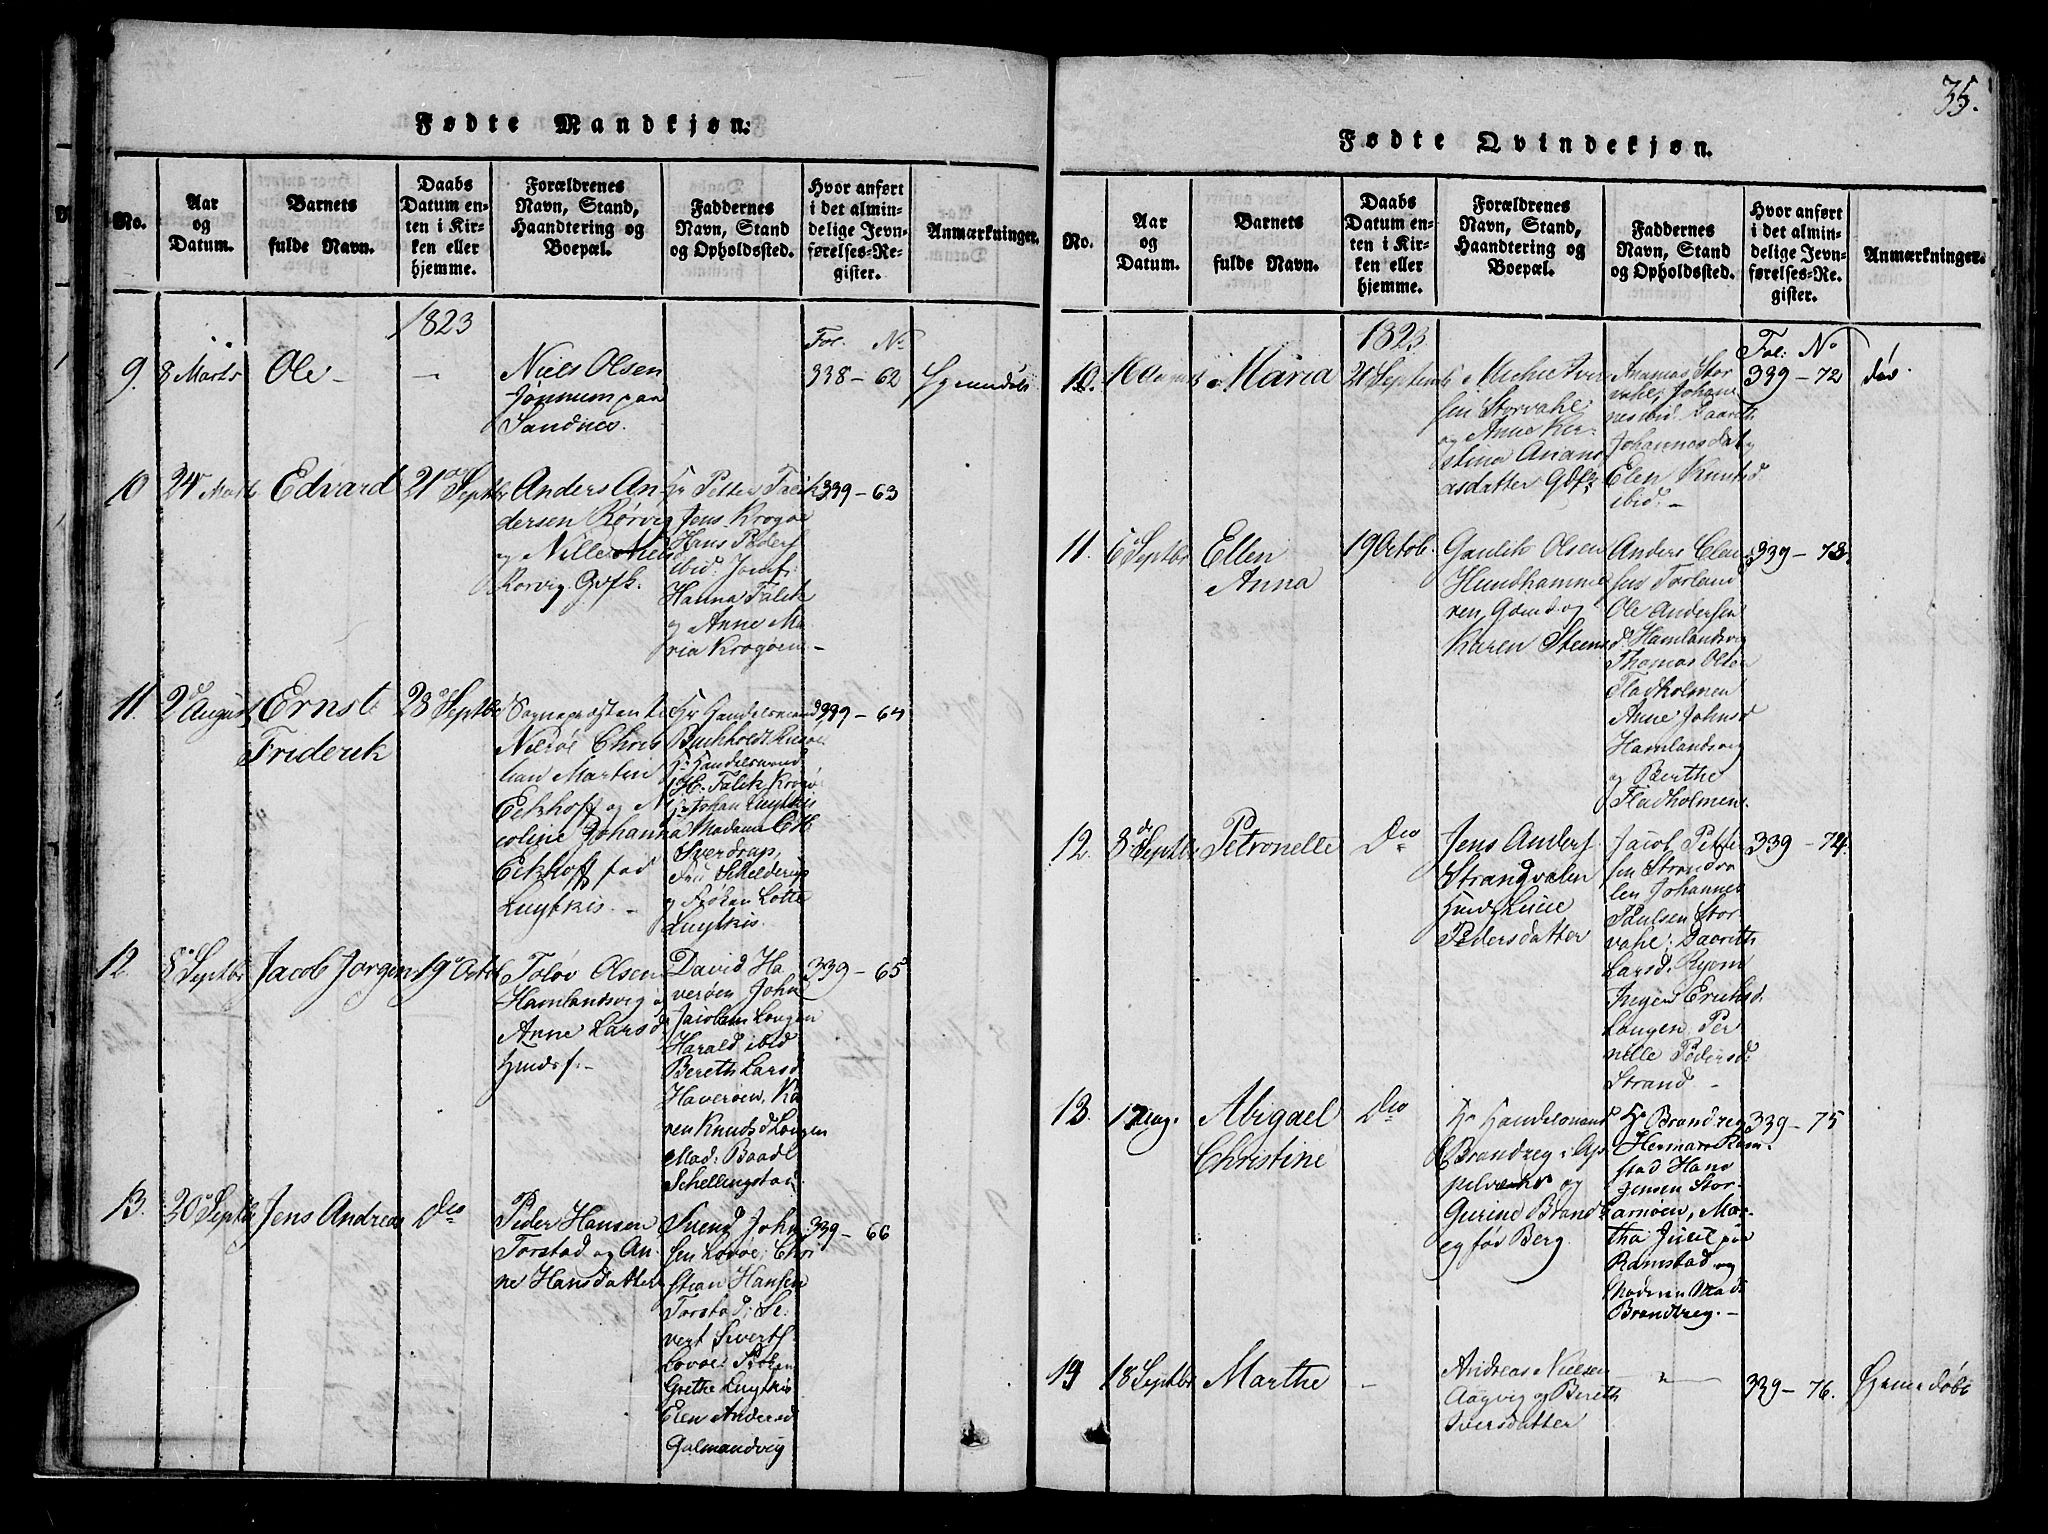 Fødte Mandkjøn.
No.
Aar
og
Datum.
Barnets
fulde Navn.
Daabs
Datum en-
ten i Kir-
ken eller
hjemme.
Forældrenes
Navn, Stand,
Haandtering og
Boepæl.
Faddernes
Navn, Stand
og Opholdssted.
Hvor anført
i det almin-
delige Jevn-
førelses-Re-
gister.
Anmærkninger.
1823
Fol. No
9. 8 Marts Ole - -
Niels Olsen
paa
Sandnes.
338 - 62
10 24 Marts Edvard 21 Septbr
Anders An-
dersen Rørvig
og Nille Niels
Rørvig Gvfk.
Hr Petter Falch
Jens Krogøe
Hans Peders
ibid: Jomf:
Hanna Falck
og Anne Ma
ria Krogøen -
339 - 63
11. 2 August Ernst
Friderik
28 Septbr
Sognepræsten
Nærøe Chris
tian Martin
Eckhoff og N
coline Johanna
Eckhoff fød
Luytkis. -
Hr Handelsmand
Buchholdt
Hr Handelsmand
H. Falck Krogø
Hr Johan Luytkis
Madame
Sverdrup,
Fru Schelderup
og Frøken Lotte
Luytkis.
339 - 64
12. 8 Septbr Jacob Jørgen 19 Octob
Olsen
Hamlandsvig
Anne Larsd
Hmdsf. -
David Ha
verøen John
Jacobsen Longen
Harald ibid
Bereth Larsd
Haverøen, Ka
ren Knudsd Longen
Mad: Baade
Schellingstad
339 - 65
13. 20 Septbr Jens Andreas Do
Peder Hansen
Torstad og An-
ne Hansdatter
Svend John
sen Lovøe; Chri
stian Hansen
Torstad; Se-
vert Siverts
Lovøe: Frøken
Grethe Luytkis
Elen Andersd
Galmandvig
339 - 66
35.
Fødte Qvindekjøn.
No.
Aar
og
Datum.
Barnets
fulde Navn.
Daabs
Datum en-
ten i Kir-
ken eller
hjemme.
Forældrenes
Navn, Stand,
Haandtering og
Boepæl.
Faddernes
Navn, Stand
og Opholdssted.
Hvor anført
i det almin-
delige Jevn-
førelses-Re-
gister.
Anmærkninger.
1823
Fol: No
10. 16 August Maria 21 Septemb
Iver
sen Storvahl
og Anne Kir-
stina Anani
asdatter Gdfk
Ananias Stor
vahl; Johan
nes ibid. Daareth
Johannesdat
Elen Knutsd
ibid: -
339 - 72 død.
11. 6 Septbr Ellen
Anna
19 Octob.
Gaulith Olsen
Hundhamme
ren, Gdmd og
Karen Steens
Anders Clem
sen Torland
Ole Andersen
Hamlandsvig
Thomas Olsen
Fladholmen
Anne Johnsd
Hamlandsvig
og Berthe
Fladholmen
339 - 73.
12. 8 Septbr Petronelle Do
Jens Anders
Strandvalen
Hmd Lucie
Pedersdatter
Jacob Pette
sen Strandva
len Johannes
Paulsen Stor-
vahl; Daareth
Larsd. Ryem
Inger Erichsd
Longen, Per
nille Pedersd:
Strand -
339 - 74.
13. 17 Aug. Abigael
Christine
Do
Hr Handelsmand
Brandzeg i Ap
pelvær og
Gurine Brandz
eg fød Berg.
Hr Brandzeg
Herman Ram
stad Hans
Jensen Stor-
arnøen, Mar-
tha Juul paa
Ramstad og
Mad:
Brandzeg. -
339 - 75
14 18 Septbr Marthe -
Andreas Nielsen
Aagvig og Bereth
Iversdatter
339 - 76. Hjemmedøbt